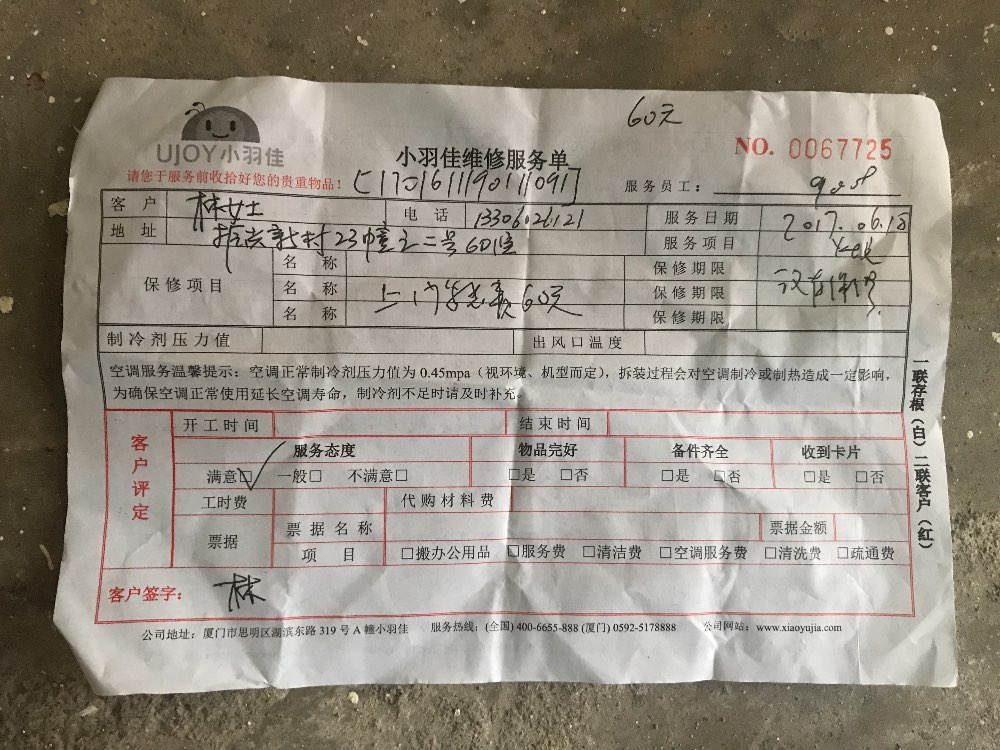 60元
UJOY小羽佳
小羽佳维修服务单
NO. 0067725
请您于服务前收拾好您的贵重物品！
服务员工：
客户 林女士 电话 服务日期 2017.06.18
地址 23幢之二号601室 服务项目
保修项目 名称 保修期限
名称 60元 保修期限
名称 保修期限
制冷剂压力值 出风口温度
空调服务温馨提示：空调正常制冷剂压力值为 0.45mpa（视环境、机型而定），拆装过程会对空调制冷或制热造成一定影响，
为确保空调正常使用延长空调寿命，制冷剂不足时请及时补充。
客户评定
开工时间 结束时间
服务态度 物品完好 备件齐全 收到卡片
满意□ 一般□ 不满意□ □是 □否 □是 □否 □是 □否
工时费 代购材料费
票据 票据名称 票据金额
项目 □搬办公用品 □服务费 □清洁费 □空调服务费 □清洗费 □疏通费
客户签字： 林
公司地址：厦门市思明区湖滨东路 319 号 A 幢小羽佳 服务热线：(全国) 400-6655-888 (厦门) 0592-5178888 公司网站：www.xiaoyujia.com
一联存根（白）二联客户（红）